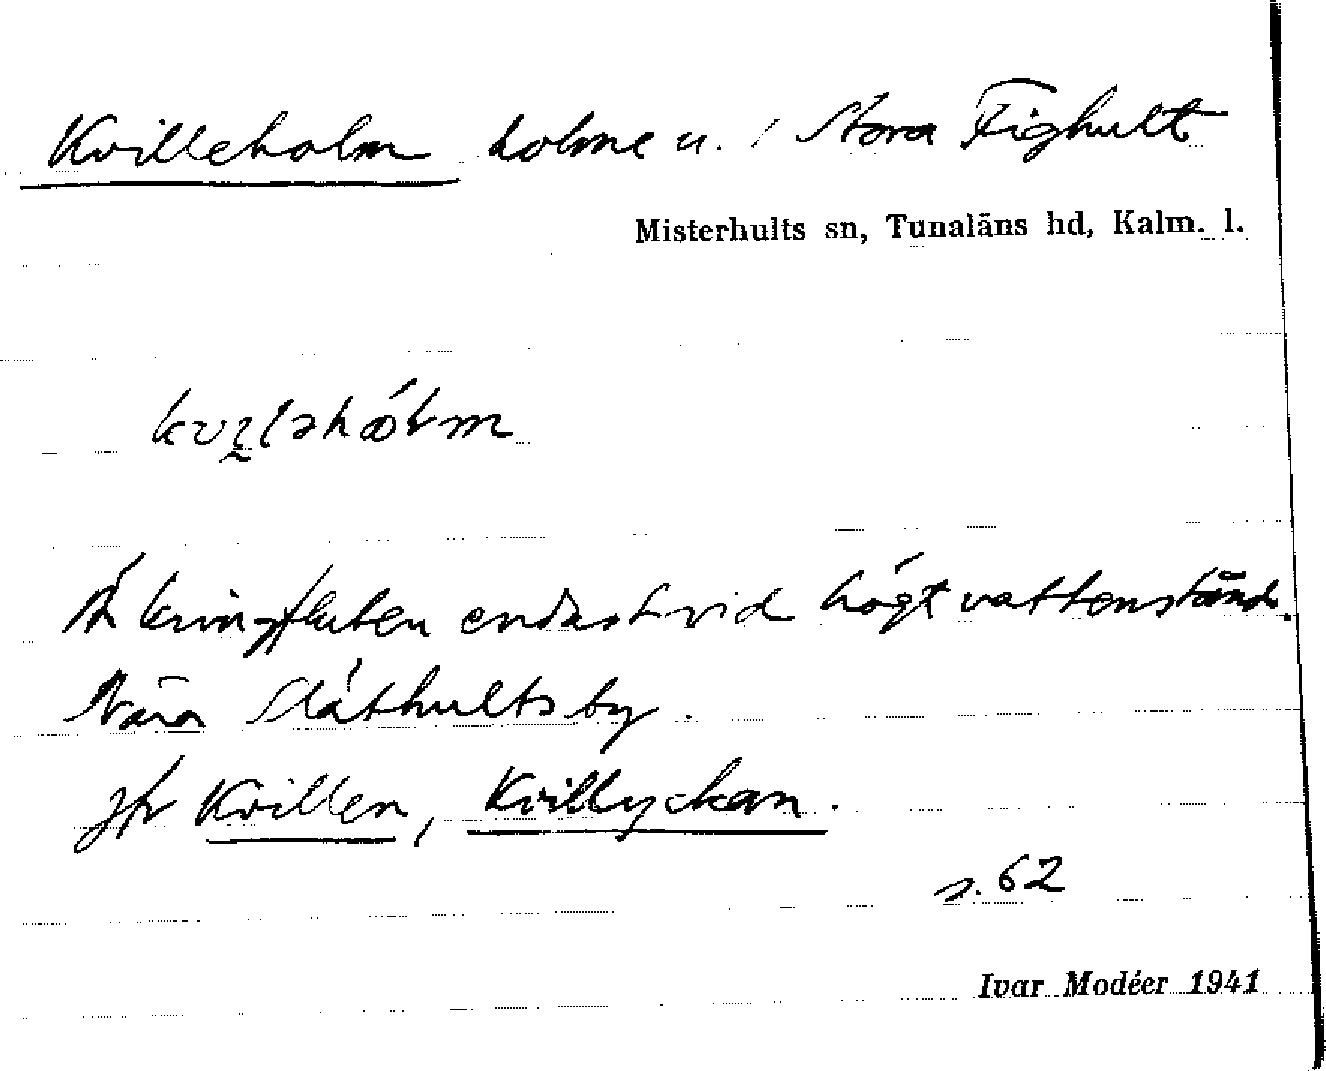 Kvilleholm holme u. / Stora Fighult
Misterhults sn, Tunaläns hd, Kalm. l.
Är kringfluten endast vid högt vattenstånd.
Nära Slåthultsby.
jfr Kvillen, Kvillyckan.
s. 62
Ivar Modéer 1941